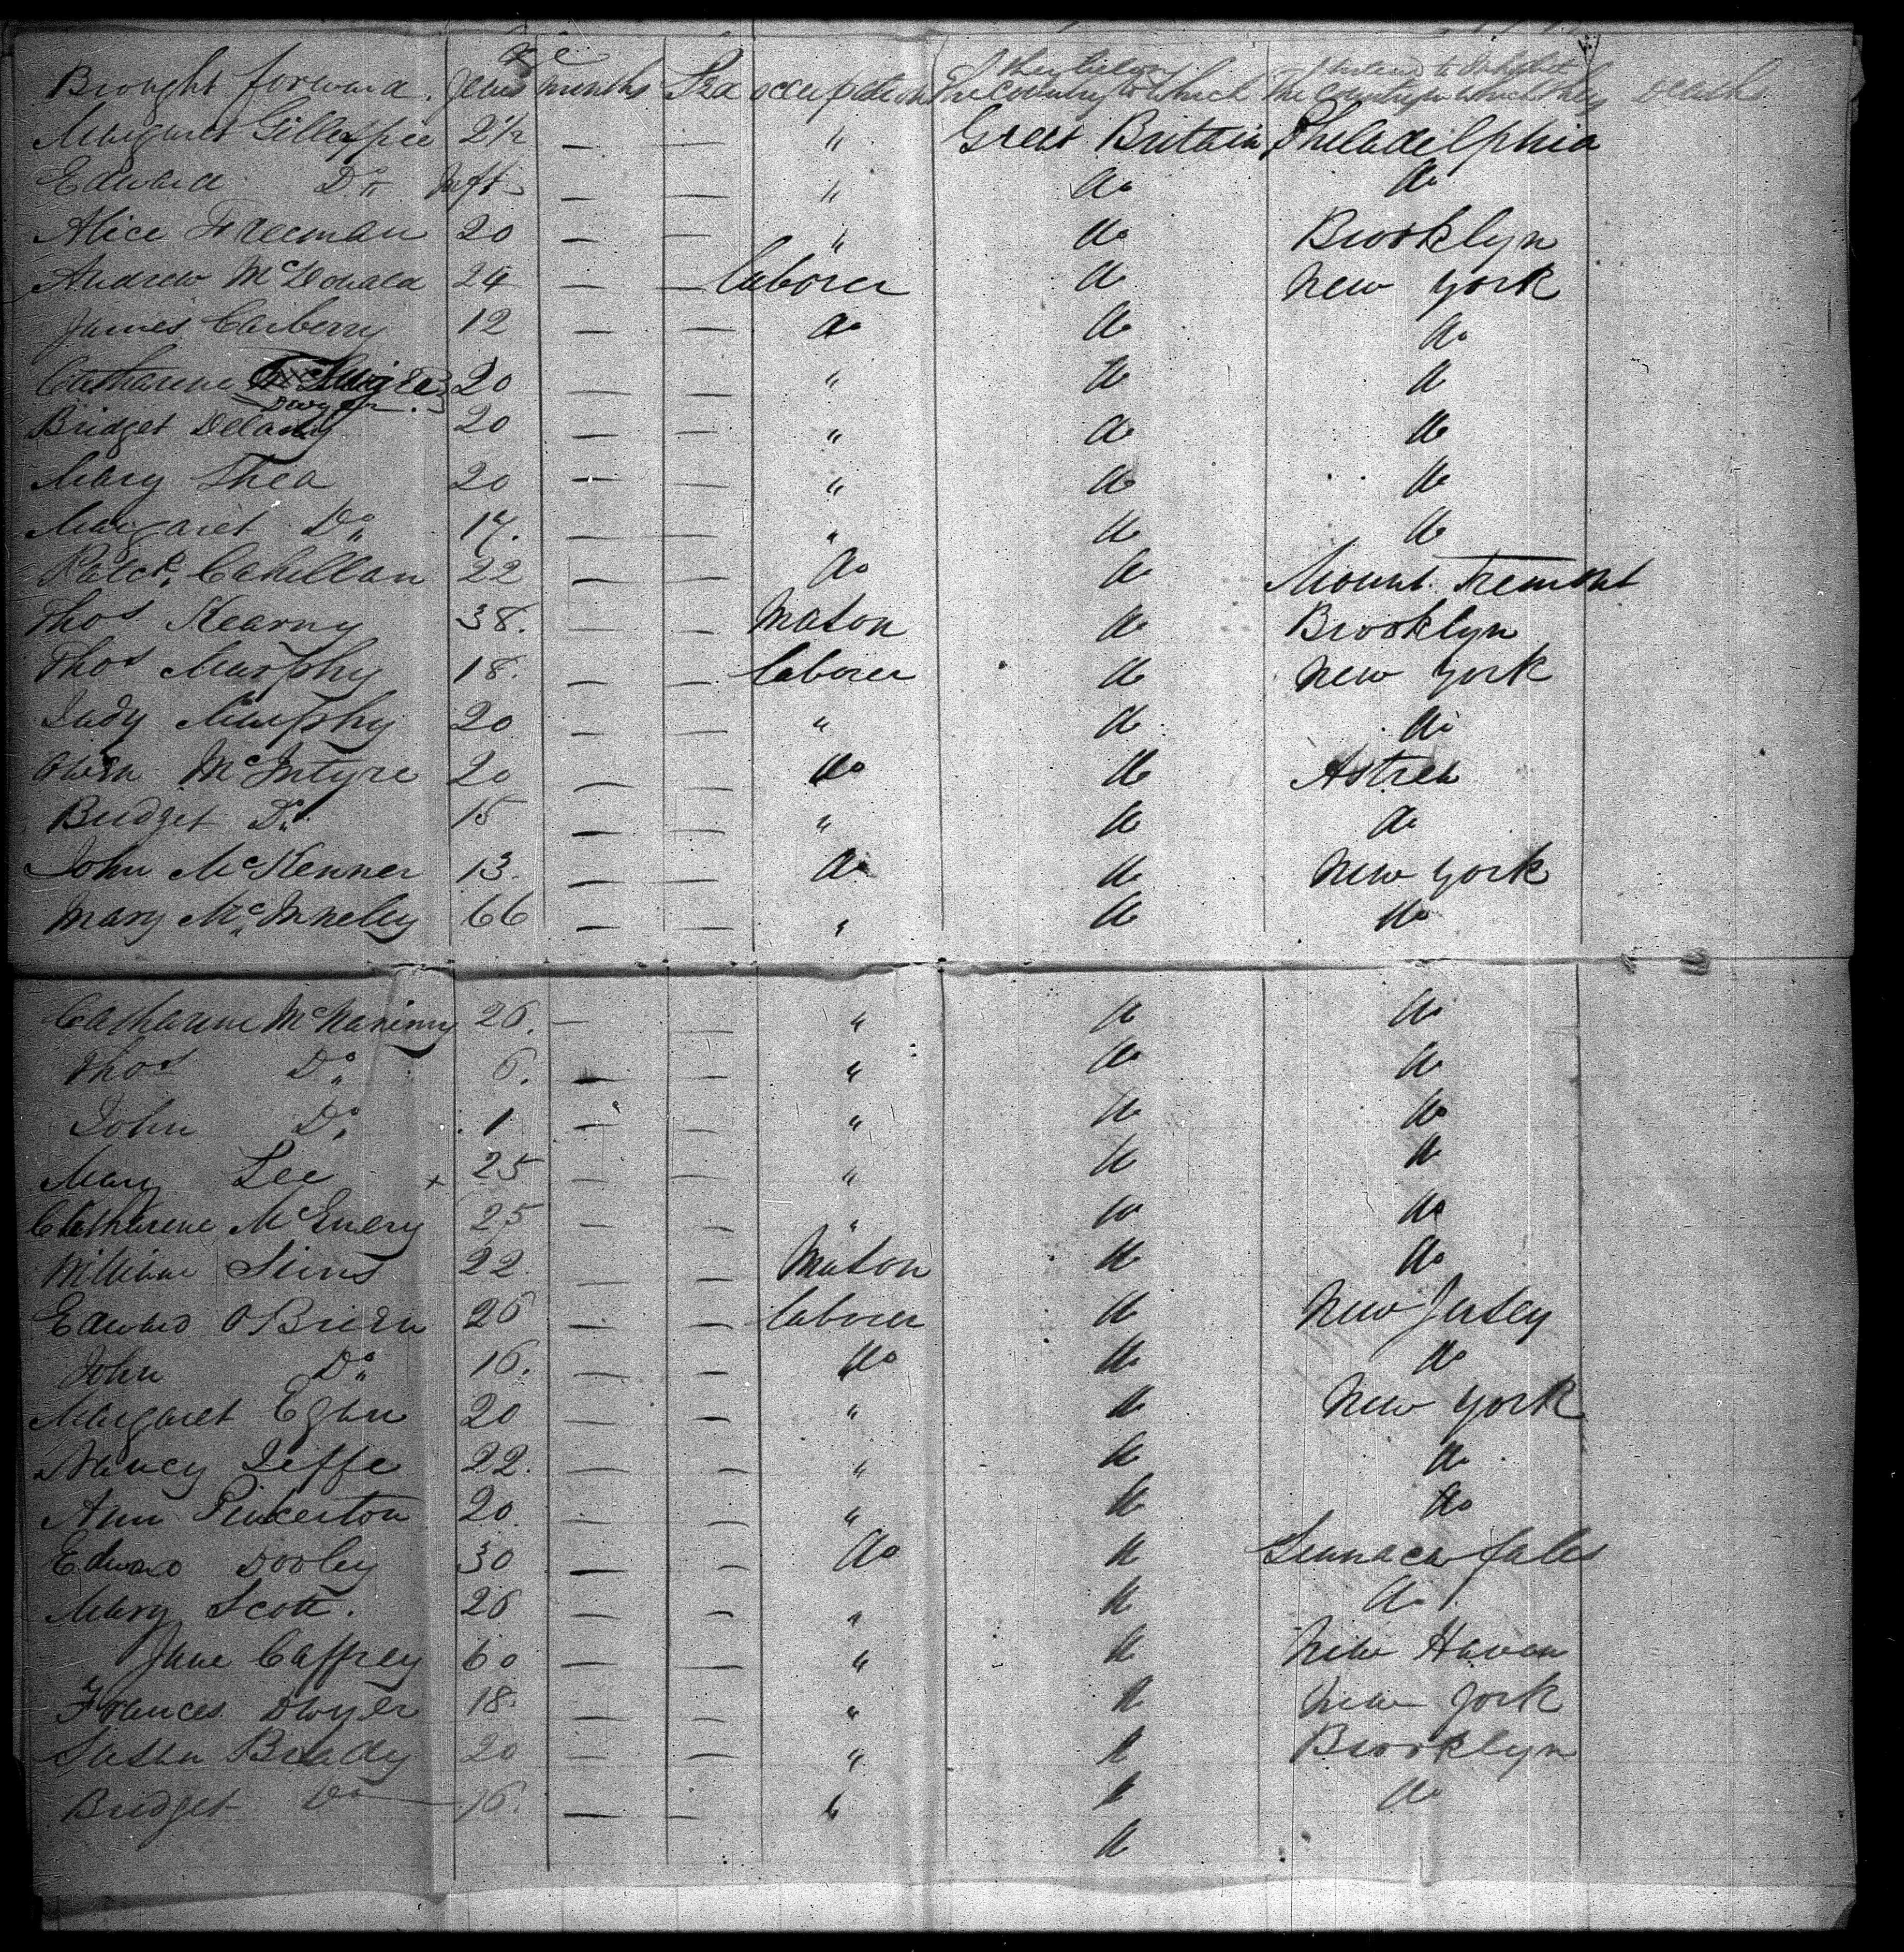 Age
they belong intend to inhabit
Brought forward. Years months Sex occupation The Country to which The Country in which they Death
Margaret Gillespie 2½ — — " Great Britain Philadelphia
Edward Do Inft — — " do do
Alice Freeman 20 — — " do Brooklyn
Andrew McDonald 24 — — laborer do New York
James Carberry 12 — — do do do
Catharine 20 — — " do do
Dwyer
Bridget Delany 20 — — " do do
Mary Shea 20 — — " do do
Margaret Do 17. — — " do do
Patck. Cahillan 22 — — do do Mount Tremont
Thos Kearny 38. — — Mason do Brooklyn
Thos Murphy 18. — — laborer do New York
Judy Murphy 20 — — " do do
Owen McIntyre 20 — — do do Astrea
Bridget Do 15 — — " do do
John McKenner 13. — — do do New York
Mary McInneley 66 — — " do do
Catharine McNaninny 26. — — " do do
Thos Do 6. — — " do do
John Do 1 — — " do do
Mary Lee + 25 — — " do do
Catharine McEnery 25 — — " do do
William Sims 22. — — Mason do do
Edward OBrien 26 — — laborer do New Jersey
John Do 16. — — do do do
Margaret Egan 20 — — " do New York
Nancy Jeffe 22. — — " do do
Ann Pinkerton 20. — — " do do
Edward Dooley 30 — — do do Sennaca fales
Mary Scott. 26 — — " do do
Jane Caffrey 60 — — " do New Haven
Frances Dwyer 18. — — " do New York
Susan Brady 20 — — " do Brooklyn
Bridget Do 16. — — " do do
do